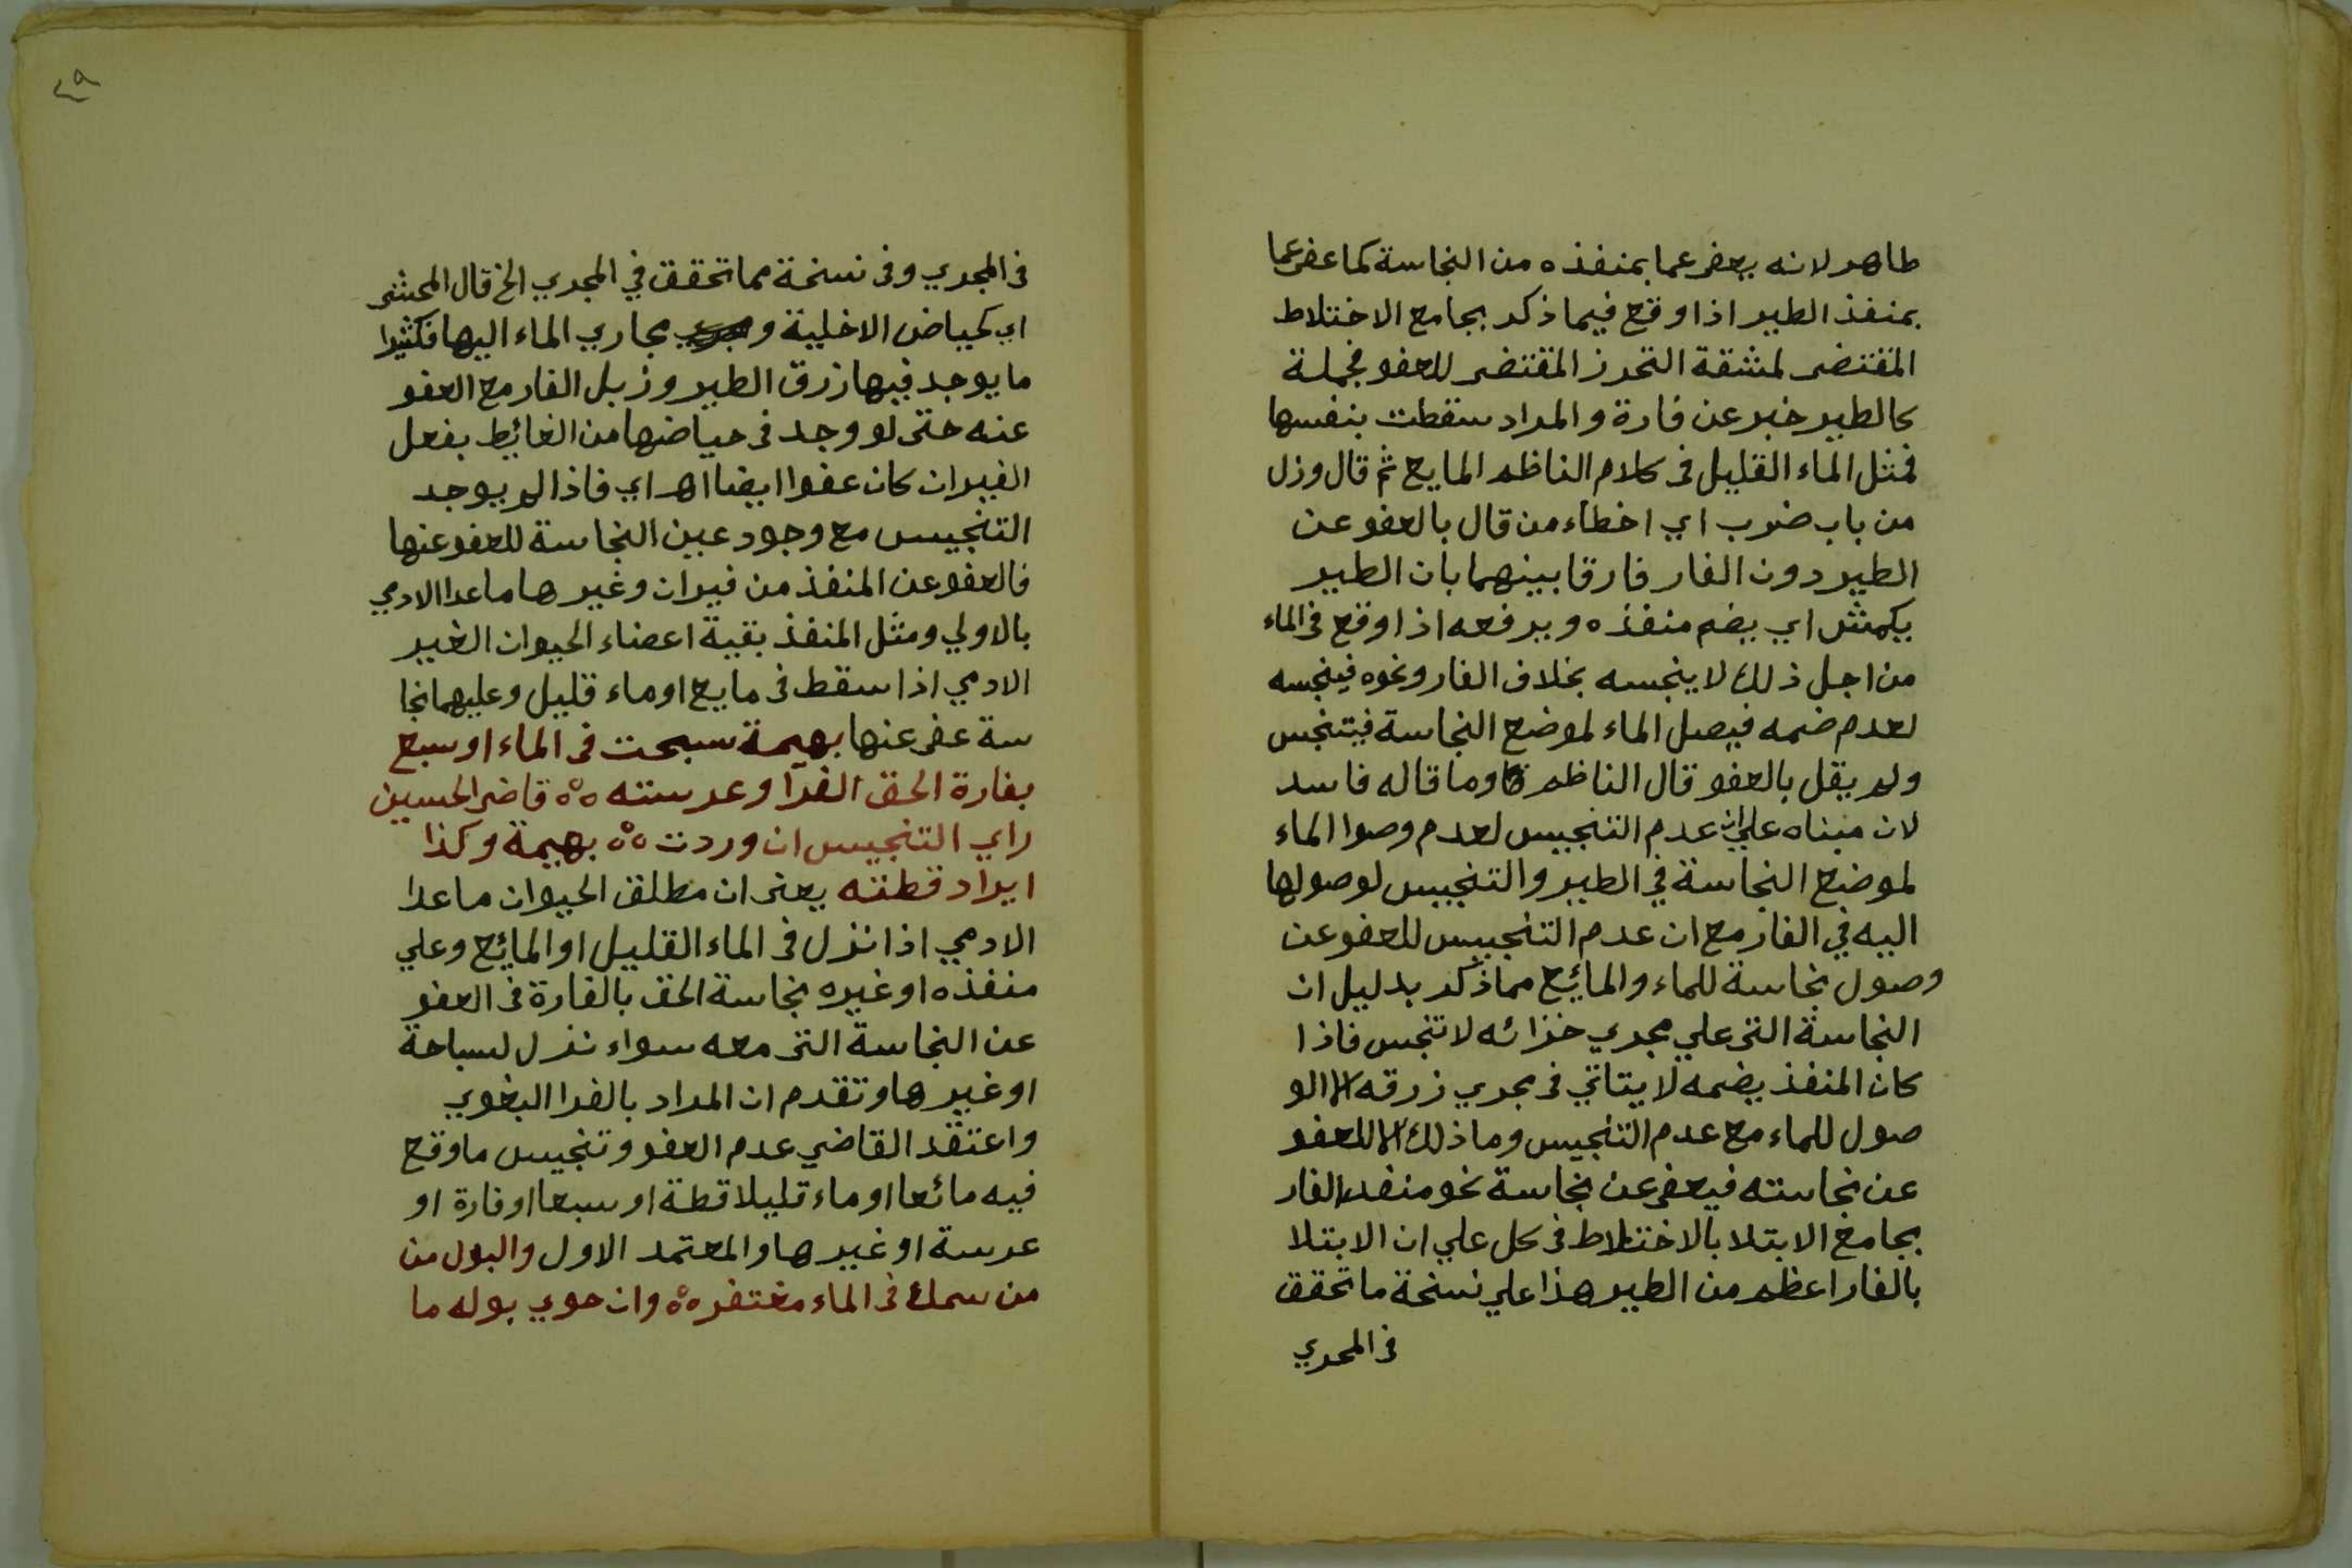 طاهر لانه يعفي عما بمنفذه من النجاسة كما عفي عما
بمنفذ الطير اذا وقع فيما ذكر بجامع الاختلاط
المقتضي لمشقة التحرز المقتضي للعفو فجملة
كالطير خبر عن فارة والمراد سقطت بنفسها
فمثل الماء القليل في كلام الناظم المايع ثم قال وزل
من باب ضرب اي اخطاء من قال بالعفو عن
الطير دون الفار فارقا بينهما بان الطير
يكمش اي يضم منفذه ويرفعه اذا وقع في الماء
من اجل ذلك لا ينجسه بخلاف الفار ونحوه فينجسه
لعدم ضمه فيصل الماء لموضع النجاسة فيتنجس
ولم يقل بالعفو قال الناظم وما قاله فاسد
لان مبناه علي ان عدم التنجيس لعدم وصوا الماء
لموضع النجاسة في الطير والتنجيس لوصولها
اليه في الفار مع ان عدم التنجيس للعفو عن
وصول نجاسة للماء والمائع مما ذكر بدليل ان
النجاسة التي علي مجري خزائه لا تنجس فاذا
كان المنفذ يضمه لا يتاتي في مجري زرقه الا الو
صول للماء مع عدم التنجيس وما ذلك الا للعفو
عن نجاسته فيعفي عن نجاسة نحو منفذ الفار
بجامع الابتلا بالاختلاط في كل علي ان الابتلا
بالفار اعظم من الطير هذا علي نسخة ما تحقق
في المجري
٤٩
في المجري وفي نسخة مما تحقق في المجري الخ قال المحشي
اي كحياض الاخلية و مجاري الماء اليها فكثيرا
ما يوجد فيها زرق الطير وزبل الفار مع العفو
عنه حتي لو وجد في حياضها من الغائط بفعل
الفيران كان عفوا ايضا اهـ اي فاذا لم يوجد
التنجيس مع وجود عين النجاسة للعفو عنها
فالعفو عن المنفذ من فيران وغيرها ما عدا الادمي
بالاولي ومثل المنفذ بقية اعضاء الحيوان الغير
الادمي اذا سقط في مايع او ماء قليل وعليهما نجا
سة عفي عنها بهيمة سبحت في الماء او سبع
بفارة الحق الفرا وعرسته ه°ه قاضي الحسين
راي التنجيس ان وردت ه°ه بهيمة وكذا
ايراد قطته يعني ان مطلق الحيوان ما عدا
الادمي اذا نزل في الماء القليل او المائع وعلي
منفذه او غيره نجاسة الحق بالفارة في العفو
عن النجاسة التي معه سواء نزل لسباحة
او غيرها وتقدم ان المراد بالفرا البغوي
واعتقد القاضي عدم العفو وتنجيس ما وقع
فيه مائعا او ماء قليلا قطة او سبعا او فارة او
عرسة او غيرها والمعتمد الاول والبول من
من سمك في الماء مغتفر ه°ه وان حوي بوله ما